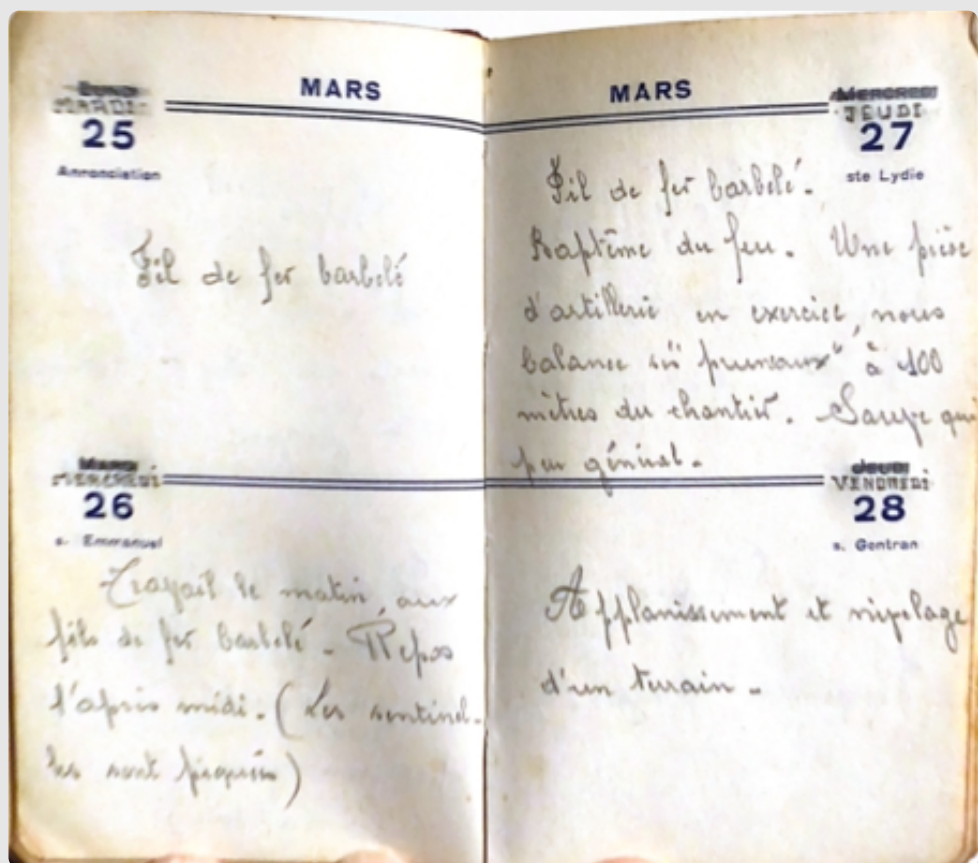 MARS
MARDI
25
Annonciation
Fil de fer barbelé
MERCREDI
26
s. Emmanuel
Travail le matin, aux
fils de fer barbelé - Repos
l'après midi. (Les sentinel-
les sont piquées)
MARS
MERCREDI
JEUDI
27
ste Lydie
Fil de fer barbelé.
Baptême du feu. Une pièce
d'artillerie en exercice, nous
balance six pruneaux" à 100
mètres du chantier. Sauve qui
peu général.
JEUDI
VENDREDI
28
s. Gontran
Applanissement et nivelage
d'un terrain.